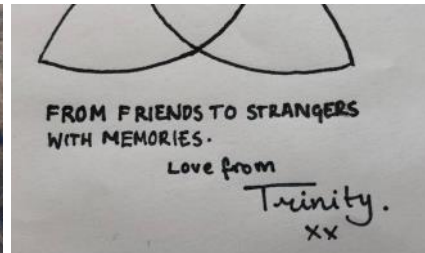 FROM FRIENDS TO STRANGERS
WITH MEMORIES.
Love from
Trinity.
xx